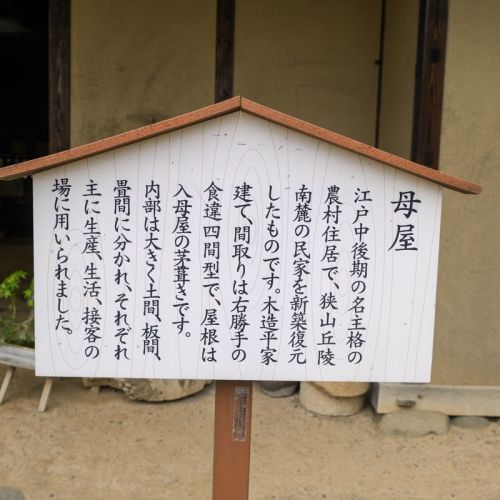 母屋
江戸中後期の名主格の
農村住居で、狭山丘陵
南麓の民家を新築復元
したものです。木造平家
建て、間取りは右勝手の
食違四間型で、屋根は
入母屋の茅葺きです。
内部は大きく土間、板間、
畳間に分かれ、それぞれ
主に生産、生活、接客の
場に用いられました。